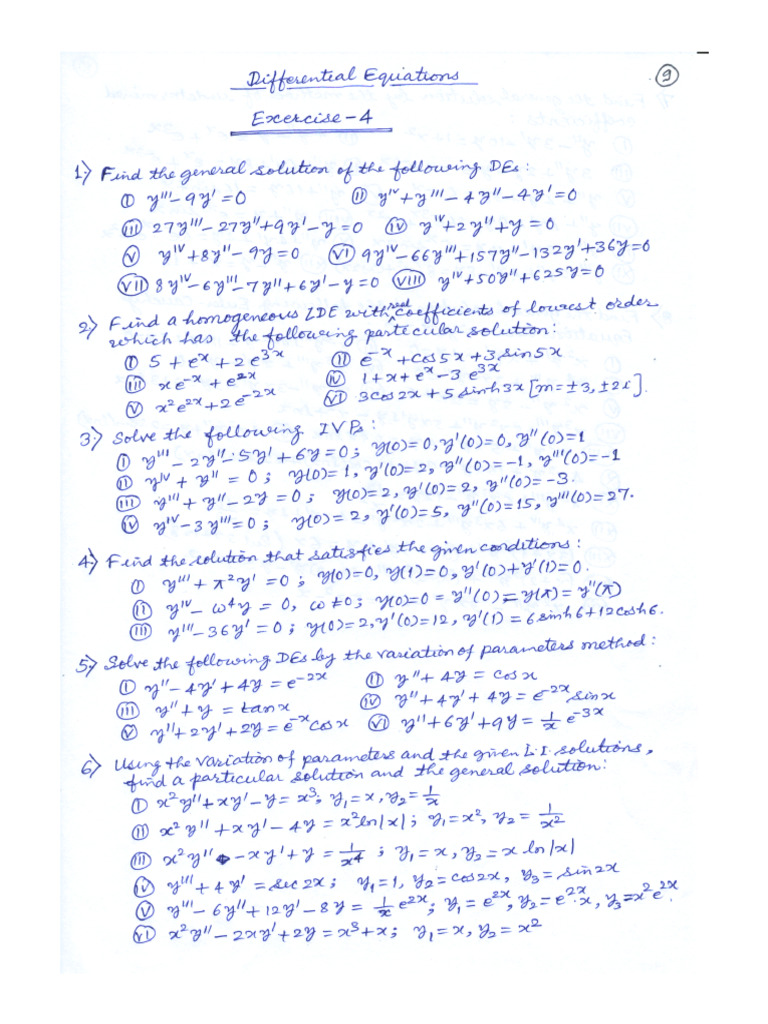 Differential Equations
9
Exercise-4
1) Find the general solution of the following DEs:
(I) y''' - 9y' = 0 (II) y^IV + y''' - 4y'' - 4y' = 0
(III) 27y''' - 27y'' + 9y' - y = 0 (IV) y^IV + 2y'' + y = 0
(V) y^IV + 8y'' - 9y = 0 (VI) 9y^IV - 66y''' + 157y'' - 132y' + 36y = 0
(VII) 8y^IV - 6y''' - 7y'' + 6y' - y = 0 (VIII) y^IV + 50y'' + 625y = 0
2) Find a homogeneous LDE with real coefficients of lowest order
which has the following particular solution:
(I) 5 + e^x + 2e^3x (II) e^-x + cos5x + 3sin5x
(III) xe^-x + e^2x (IV) 1 + x + e^x - 3e^3x
(V) x²e^2x + 2e^-2x (VI) 3cos2x + 5sinh3x [m=±3, ±2i].
3) Solve the following IVPs:
(I) y''' - 2y'' - 5y' + 6y = 0; y(0)=0, y'(0)=0, y''(0)=1
(II) y^IV + y'' = 0; y(0)=1, y'(0)=2, y''(0)=-1, y'''(0)=-1
(III) y''' + y'' - 2y = 0; y(0)=2, y'(0)=2, y''(0)=-3.
(IV) y^IV - 3y''' = 0; y(0)=2, y'(0)=5, y''(0)=15, y'''(0)=27.
4) Find the solution that satisfies the given conditions:
(I) y''' + π²y' = 0; y(0)=0, y(1)=0, y'(0)+y'(1)=0.
(II) y^IV - ω⁴y = 0, ω≠0; y(0)=0=y''(0)=y(π)=y''(π)
(III) y''' - 36y' = 0; y(0)=2, y'(0)=12, y'(1)=6sinh6+12cosh6.
5) Solve the following DEs by the variation of parameters method:
(I) y'' - 4y' + 4y = e^-2x (II) y'' + 4y = cosx
(III) y'' + y = tanx (IV) y'' + 4y' + 4y = e^-2x sinx
(V) y'' + 2y' + 2y = e^-x cosx (VI) y'' + 6y' + 9y = 1/x e^-3x
6) Using the variation of parameters and the given L.I. solutions,
find a particular solution and the general solution:
(I) x²y'' + xy' - y = x³; y₁=x, y₂=1/x
(II) x²y'' + xy' - 4y = x²ln|x|; y₁=x², y₂=1/x²
(III) x²y'' - xy' + y = 1/x⁴; y₁=x, y₂=x ln|x|
(IV) y''' + 4y' = sec2x; y₁=1, y₂=cos2x, y₃=sin2x
(V) y''' - 6y'' + 12y' - 8y = 1/x e^2x; y₁=e^2x, y₂=e^2x.x, y₃=x²e^2x.
(VI) x²y'' - 2xy' + 2y = x³ + x; y₁=x, y₂=x²